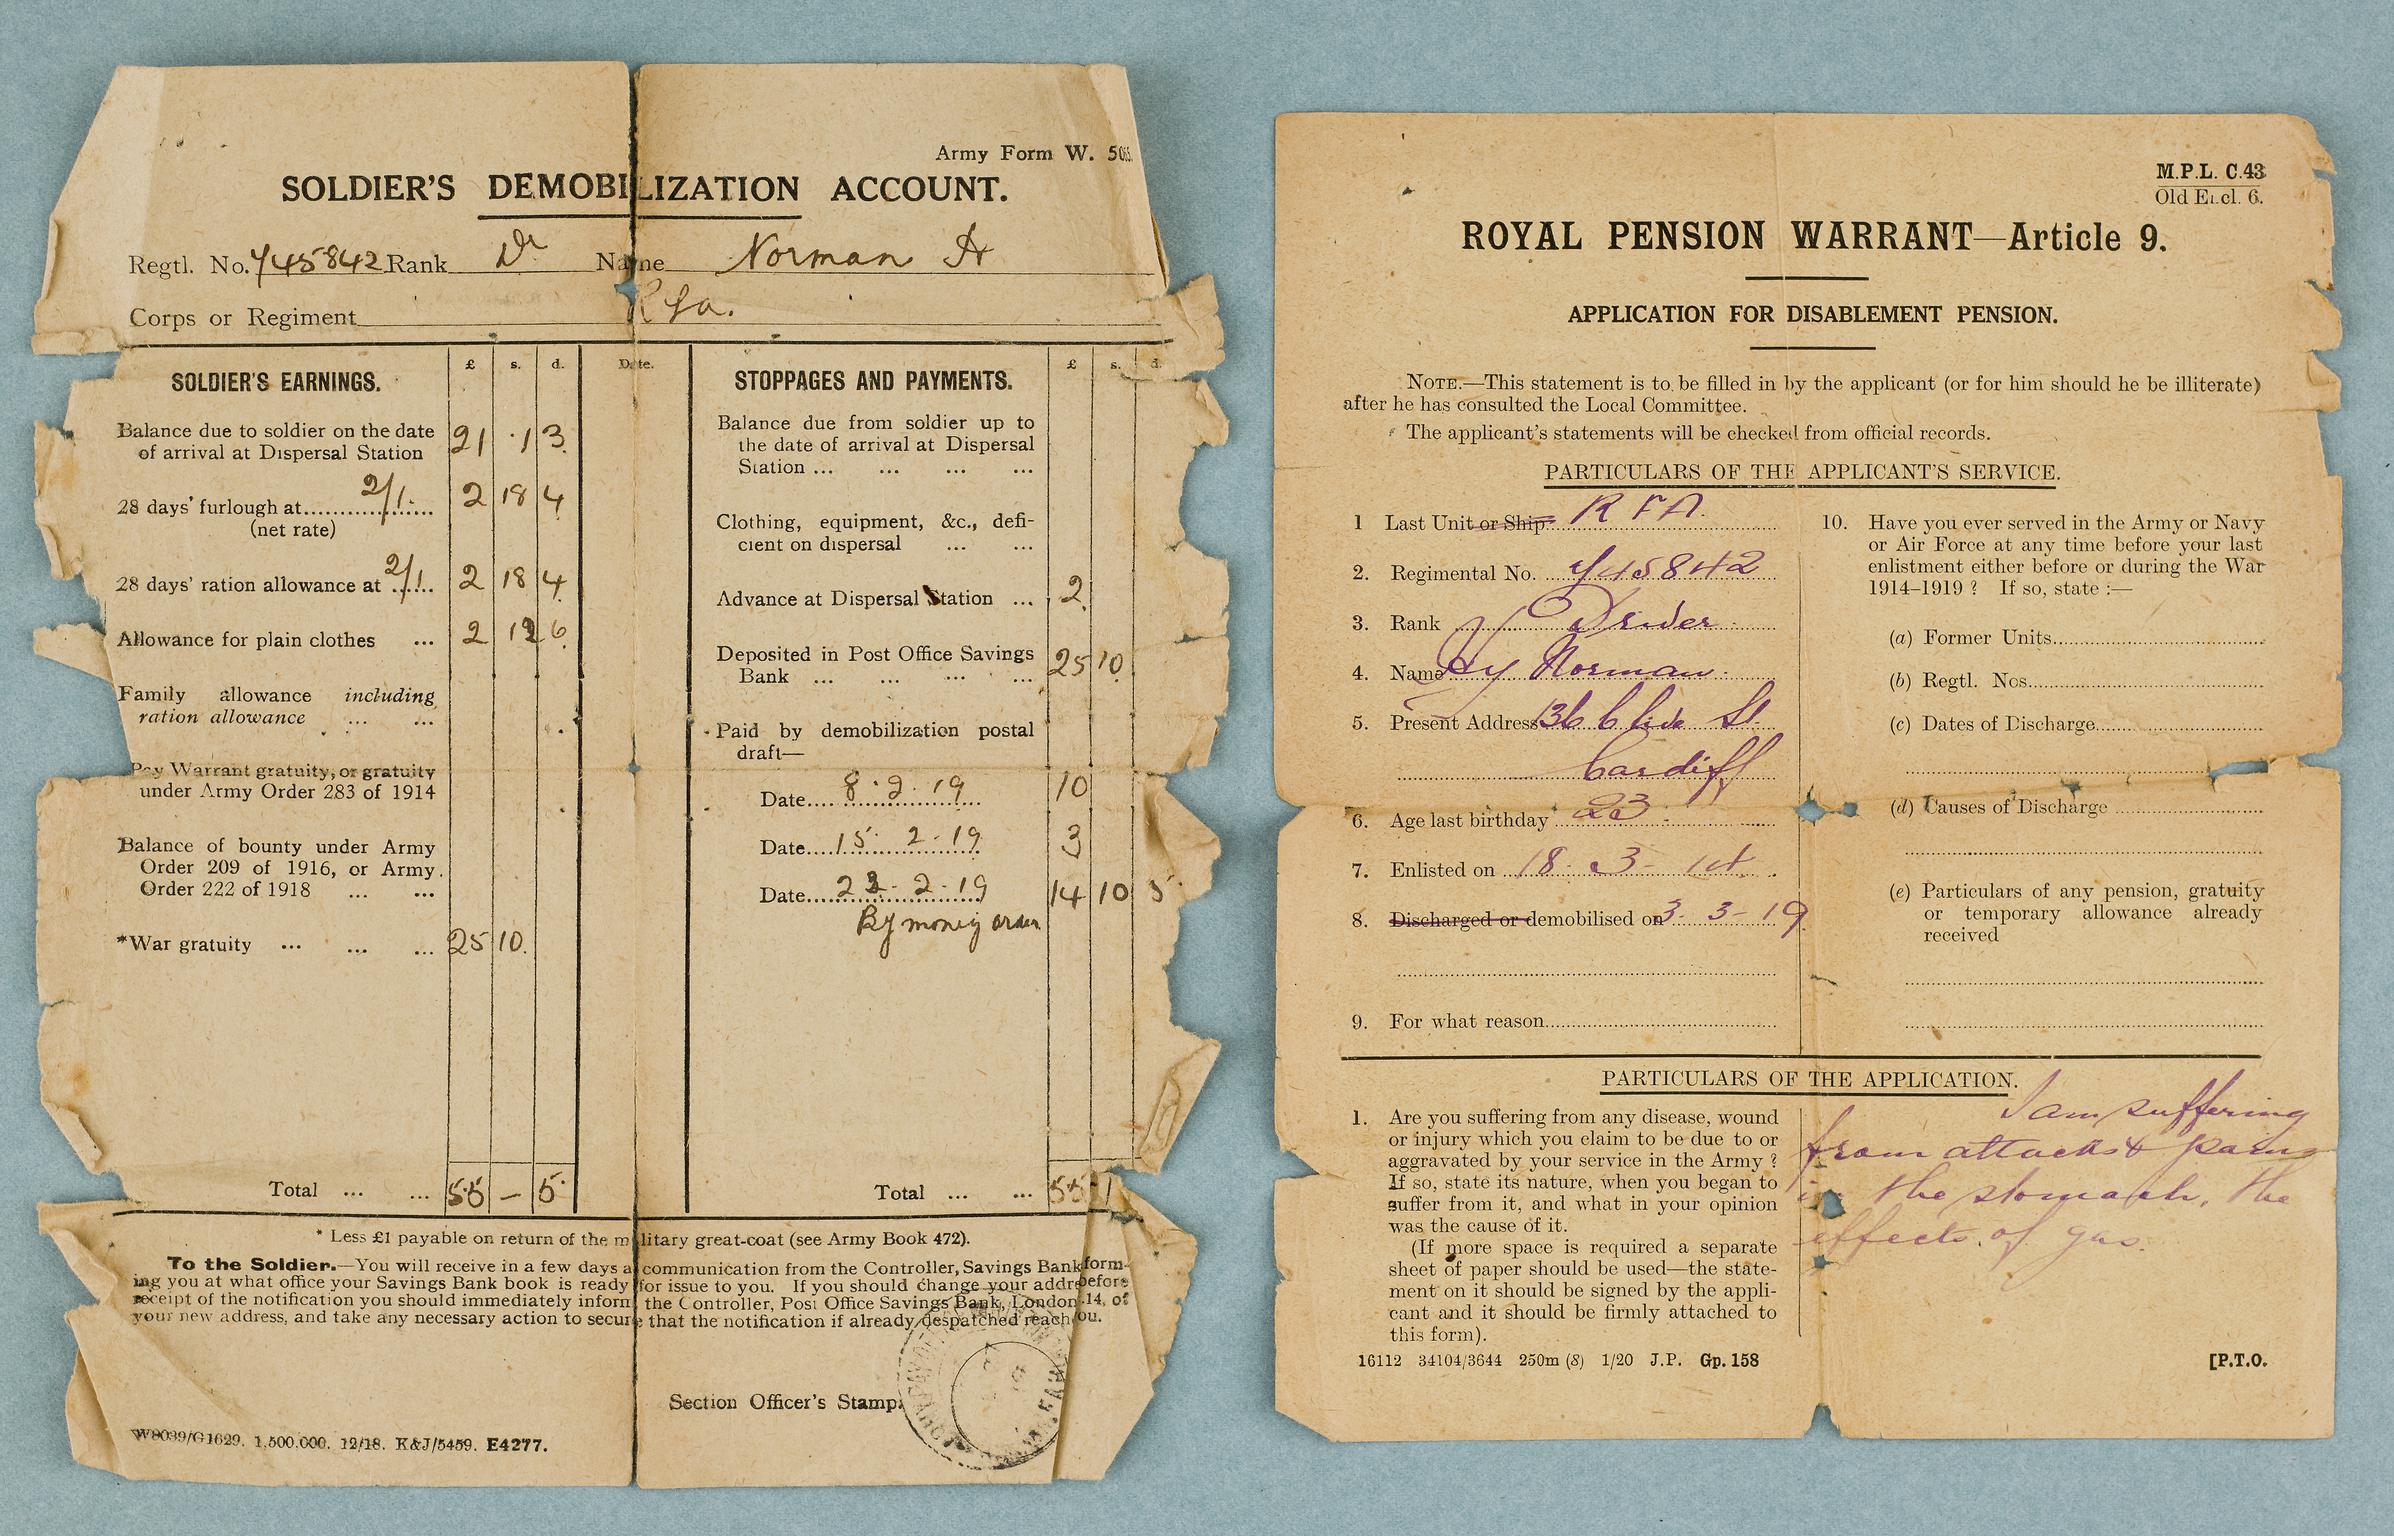 Army Form W.
SOLDIER'S DEMOBILIZATION ACCOUNT.
Regtl. No. 745842 Rank Dr Name Norman H
Corps or Regiment Rfa.
SOLDIER'S EARNINGS. £ s. d. Date.
Balance due to soldier on the date
of arrival at Dispersal Station 21 . 1 3
28 days' furlough at 2/1.
(net rate) 2 18 4
28 days' ration allowance at 2/1. 2 18 4
Allowance for plain clothes ... 2 12 6
Family allowance including
ration allowance ... ...
Pay Warrant gratuity, or gratuity
under Army Order 283 of 1914
Balance of bounty under Army
Order 209 of 1916, or Army
Order 222 of 1918 ... ...
*War gratuity ... ... ... 25 10.
Total ... ... 55 – 5
STOPPAGES AND PAYMENTS. £ s. d.
Balance due from soldier up to
the date of arrival at Dispersal
Station ... ... ... ...
Clothing, equipment, &c., defi-
cient on dispersal ... ...
Advance at Dispersal Station ... 2
Deposited in Post Office Savings
Bank ... ... ... ... 25 10
Paid by demobilization postal
draft—
Date 8.2.19 10
Date 15.2.19 3
Date 22-2-19 14 10 5
By money order
Total ... ... 55
* Less £1 payable on return of the military great-coat (see Army Book 472).
To the Soldier.—You will receive in a few days a communication from the Controller, Savings Bank form-
ing you at what office your Savings Bank book is ready for issue to you. If you should change your addre before
receipt of the notification you should immediately inform the Controller, Post Office Savings Bank, London 14, of
your new address, and take any necessary action to secure that the notification if already despatched reach you.
Section Officer's Stamp.
W8039/G1629. 1,500,000. 12/18. K&J/5459. E4277.
M.P.L. C.43
Old Encl. 6.
ROYAL PENSION WARRANT—Article 9.
APPLICATION FOR DISABLEMENT PENSION.
NOTE.—This statement is to be filled in by the applicant (or for him should he be illiterate)
after he has consulted the Local Committee.
The applicant's statements will be checked from official records.
PARTICULARS OF THE APPLICANT'S SERVICE.
1 Last Unit or Ship R F A
2. Regimental No. 745842
3. Rank Driver
4. Name Hy Norman
5. Present Address 36 Clive St.
Cardiff
6. Age last birthday 23
7. Enlisted on 18-3-
8. Discharged or demobilised on 3-3-19
9. For what reason
10. Have you ever served in the Army or Navy
or Air Force at any time before your last
enlistment either before or during the War
1914–1919 ? If so, state :—
(a) Former Units
(b) Regtl. Nos.
(c) Dates of Discharge
(d) Causes of Discharge
(e) Particulars of any pension, gratuity
or temporary allowance already
received
PARTICULARS OF THE APPLICATION.
1. Are you suffering from any disease, wound
or injury which you claim to be due to or
aggravated by your service in the Army ?
If so, state its nature, when you began to
suffer from it, and what in your opinion
was the cause of it.
(If more space is required a separate
sheet of paper should be used—the state-
ment on it should be signed by the appli-
cant and it should be firmly attached to
this form).
I am suffering
from attacks & pains
in the stomach, the
effects of gas.
16112 34104/3644 250m (8) 1/20 J.P. Gp. 158
[P.T.O.